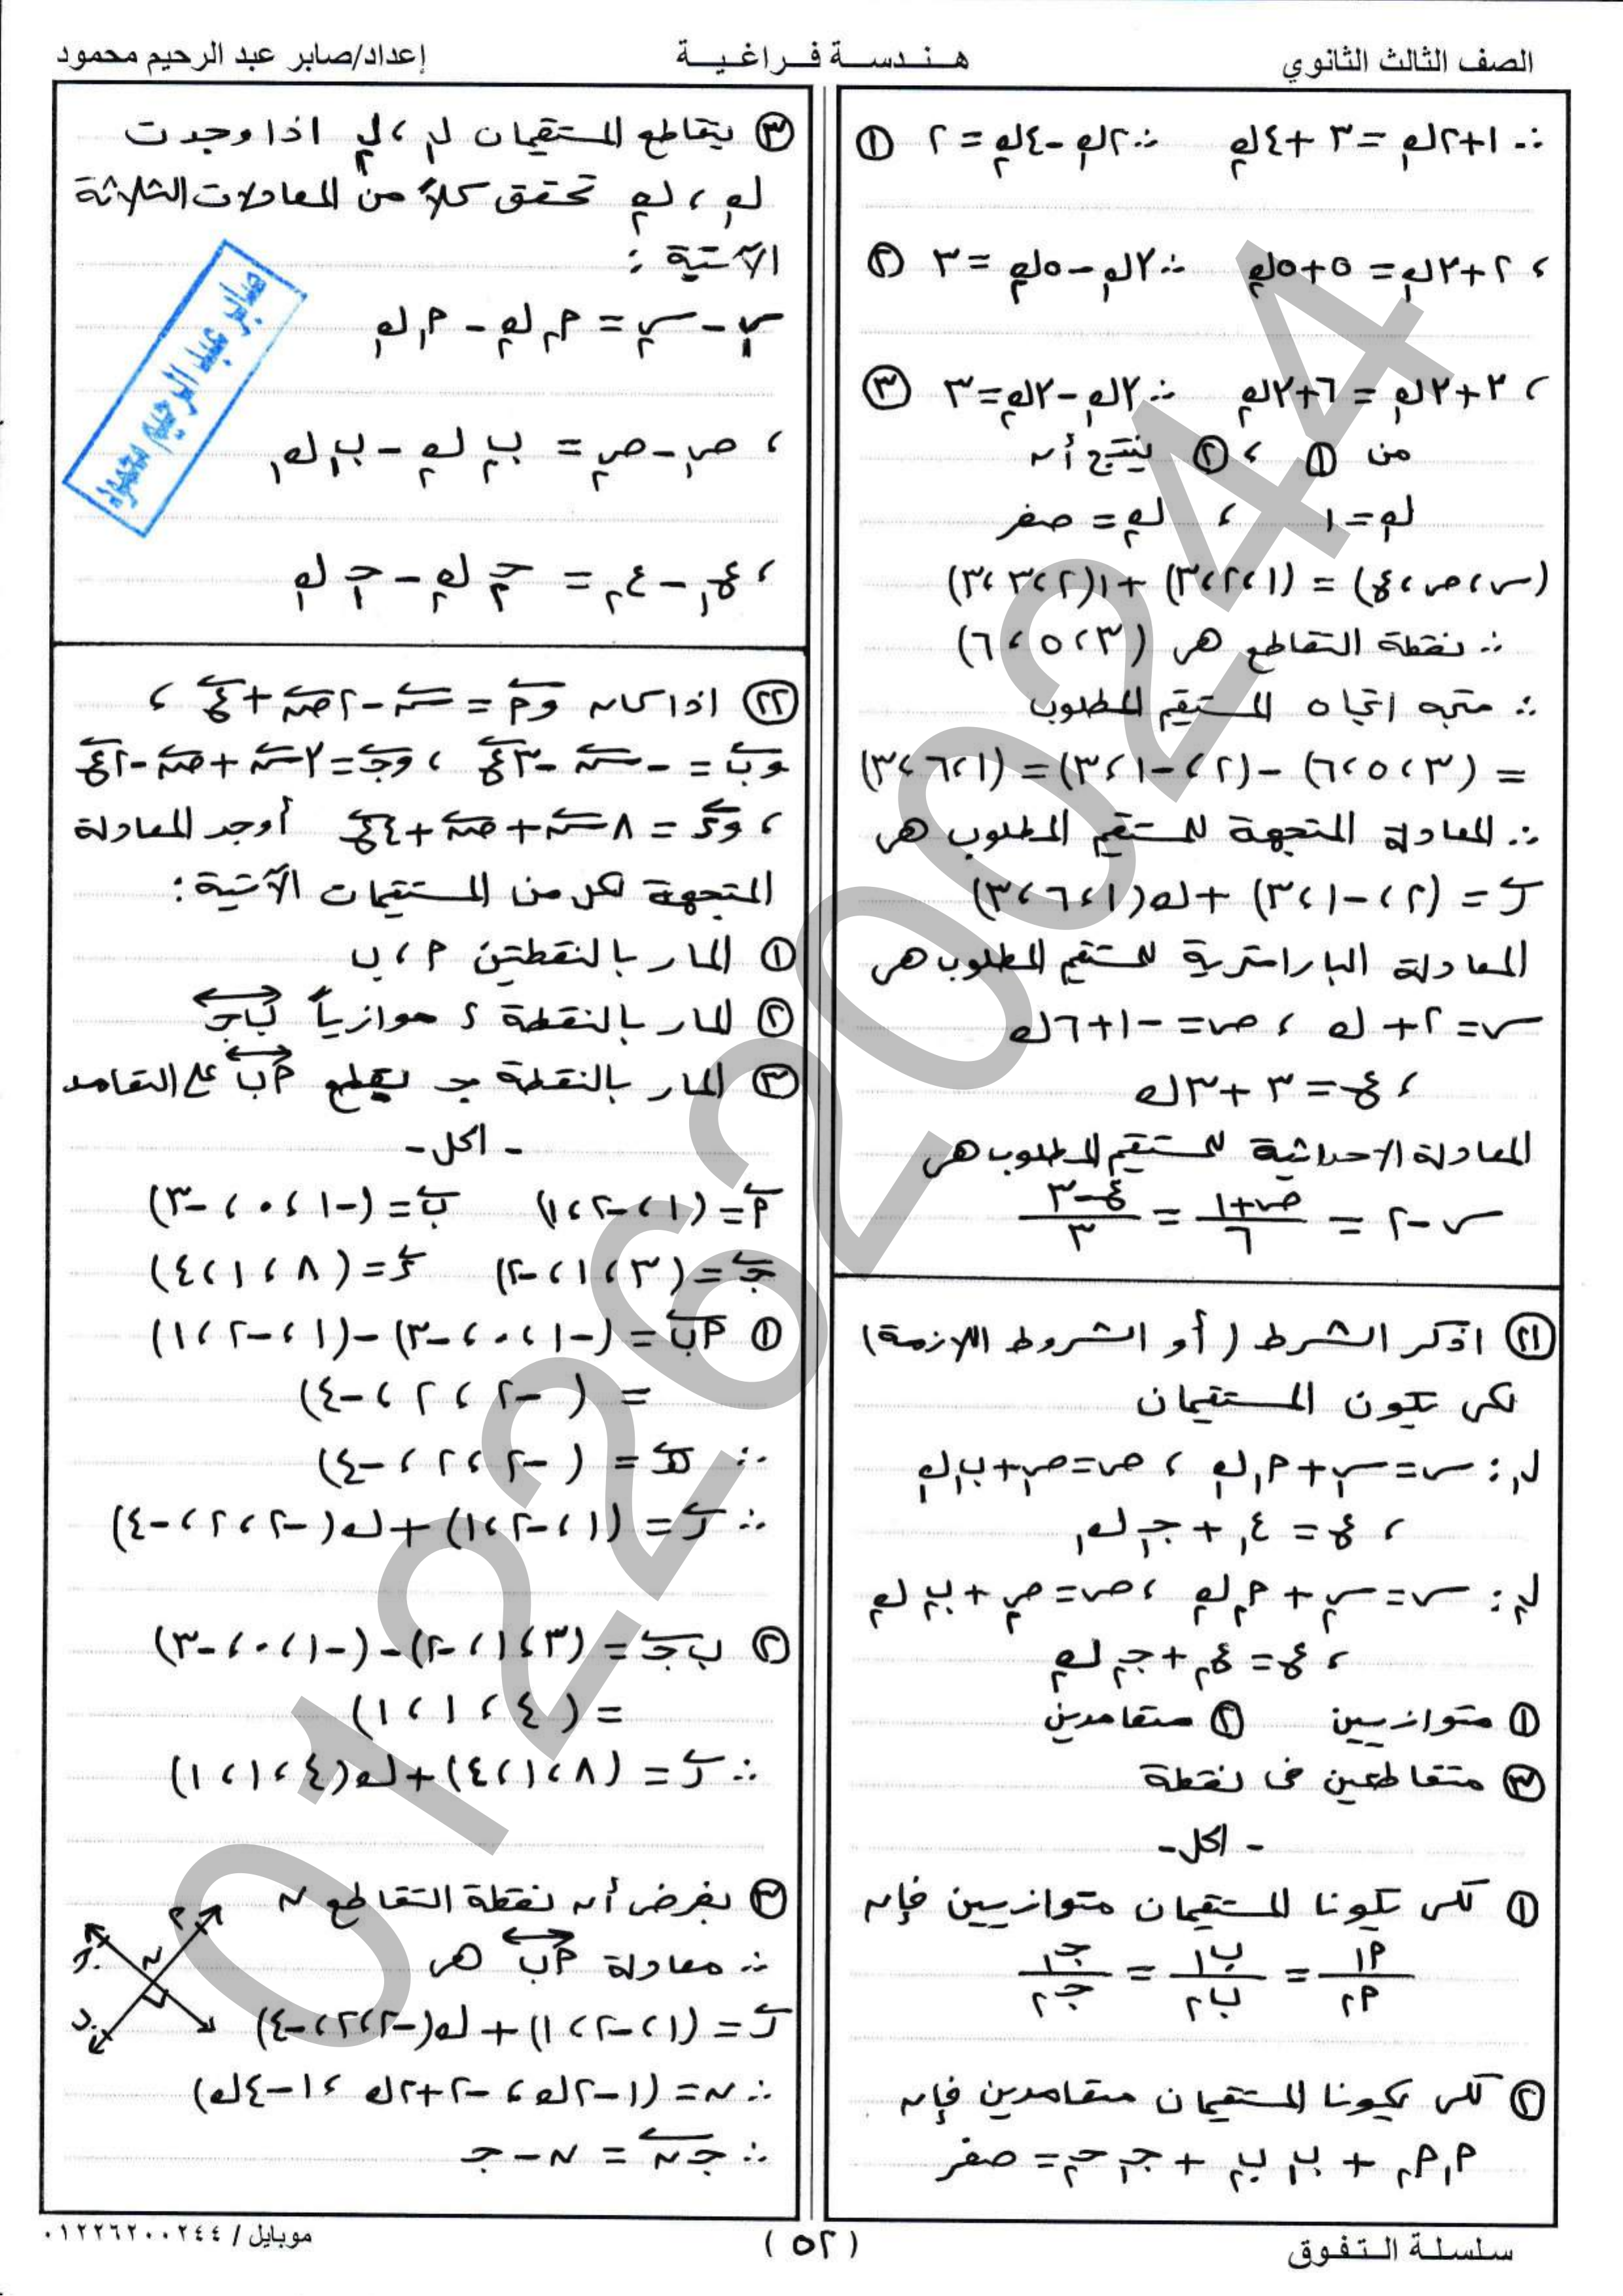 الصف الثالث الثانوي
هندسة فراغية
إعداد/صابر عبد الرحيم محمود
∴ ١+٢ك₁ = ٣+٤ك₂ ∴ ٢ك₁-٤ك₂ = ٢ ①
، ٢+٣ك₁ = ٥+٥ك₂ ∴ ٣ك₁-٥ك₂ = ٣ ②
، ٣+٣ك₁ = ٦+٣ك₂ ∴ ٣ك₁-٣ك₂ = ٣ ③
من ① ، ② ينتج أن
ك₁ = ١ ، ك₂ = صفر
(س، ص، ع) = (١، ٢، ٣) + ١(٢، ٣، ٣)
∴ نقطة التقاطع هى (٣، ٥، ٦)
∴ متجه اتجاه المستقيم المطلوب
= (٣، ٥، ٦) - (٢، -١، ٣) = (١، ٦، ٣)
∴ المعادلة المتجهة للمستقيم المطلوب هى
ر = (٢، -١، ٣) + ك(١، ٦، ٣)
المعادلة البارامترية للمستقيم المطلوب هى
س = ٢ + ك ، ص = -١+٦ك
، ع = ٣+٣ك
المعادلة الاحداثية للمستقيم المطلوب هى
س-٢ = (ص+١)/٦ = (ع-٣)/٣
㉑ اذكر الشرط (أو الشروط اللازمة)
لكى يكون المستقيمان
ل₁: س = س₁ + م₁ك₁ ، ص = ص₁ + ب₁ك₁
، ع = ع₁ + جـ₁ك₁
ل₂: س = س₂ + م₂ك₂ ، ص = ص₂ + ب₂ك₂
، ع = ع₂ + جـ₂ك₂
① متوازيين ② متعامدين
③ متقاطعين فى نقطة
- الحل -
① لكى يكونا المستقيمان متوازيين فإن
م₁/م₂ = ب₁/ب₂ = جـ₁/جـ₂
② لكى يكونا المستقيمان متعامدين فإن
م₁م₂ + ب₁ب₂ + جـ₁جـ₂ = صفر
③ يتقاطع المستقيمان ل₁ ، ل₂ اذا وجدت
ك₁ ، ك₂ تحقق كلاً من المعادلات الثلاثة
الآتية :
س₁ - س₂ = م₂ك₂ - م₁ك₁
، ص₁ - ص₂ = ب₂ك₂ - ب₁ك₁
، ع₁ - ع₂ = جـ₂ك₂ - جـ₁ك₁
صابر عبد الرحيم محمود
㉒ اذا كان وم = س - ٢ص + ع ،
وب = -س - ٣ع ، وجـ = ٣س + ص - ٢ع
، وء = ٨س + ص + ٤ع أوجد المعادلة
المتجهة لكل من المستقيمات الآتية :
① المار بالنقطتين م ، ب
② المار بالنقطة ء موازياً ب جـ
③ المار بالنقطة جـ يقطع م ب على التعامد
- الحل -
م = (١، -٢، ١) ب = (-١، ٠، -٣)
جـ = (٣، ١، -٢) ء = (٨، ١، ٤)
① م ب = (-١، ٠، -٣) - (١، -٢، ١)
= (-٢، ٢، -٤)
∴ هـ = (-٢، ٢، -٤)
∴ ر = (١، -٢، ١) + ك(-٢، ٢، -٤)
② ب جـ = (٣، ١، -٢) - (-١، ٠، -٣)
= (٤، ١، ١)
∴ ر = (٨، ١، ٤) + ك(٤، ١، ١)
③ بفرض أن نقطة التقاطع ن
∴ معادلة م ب هى
ر = (١، -٢، ١) + ك(-٢، ٢، -٤)
∴ ن = (١-٢ك ، -٢+٢ك ، ١-٤ك)
∴ جـ ن = ن - جـ
م
ن
جـ
ب
سلسلة التفوق
(٥٢)
موبايل / ٠١٢٢٦٢٠٠٢٤٤
01226200244